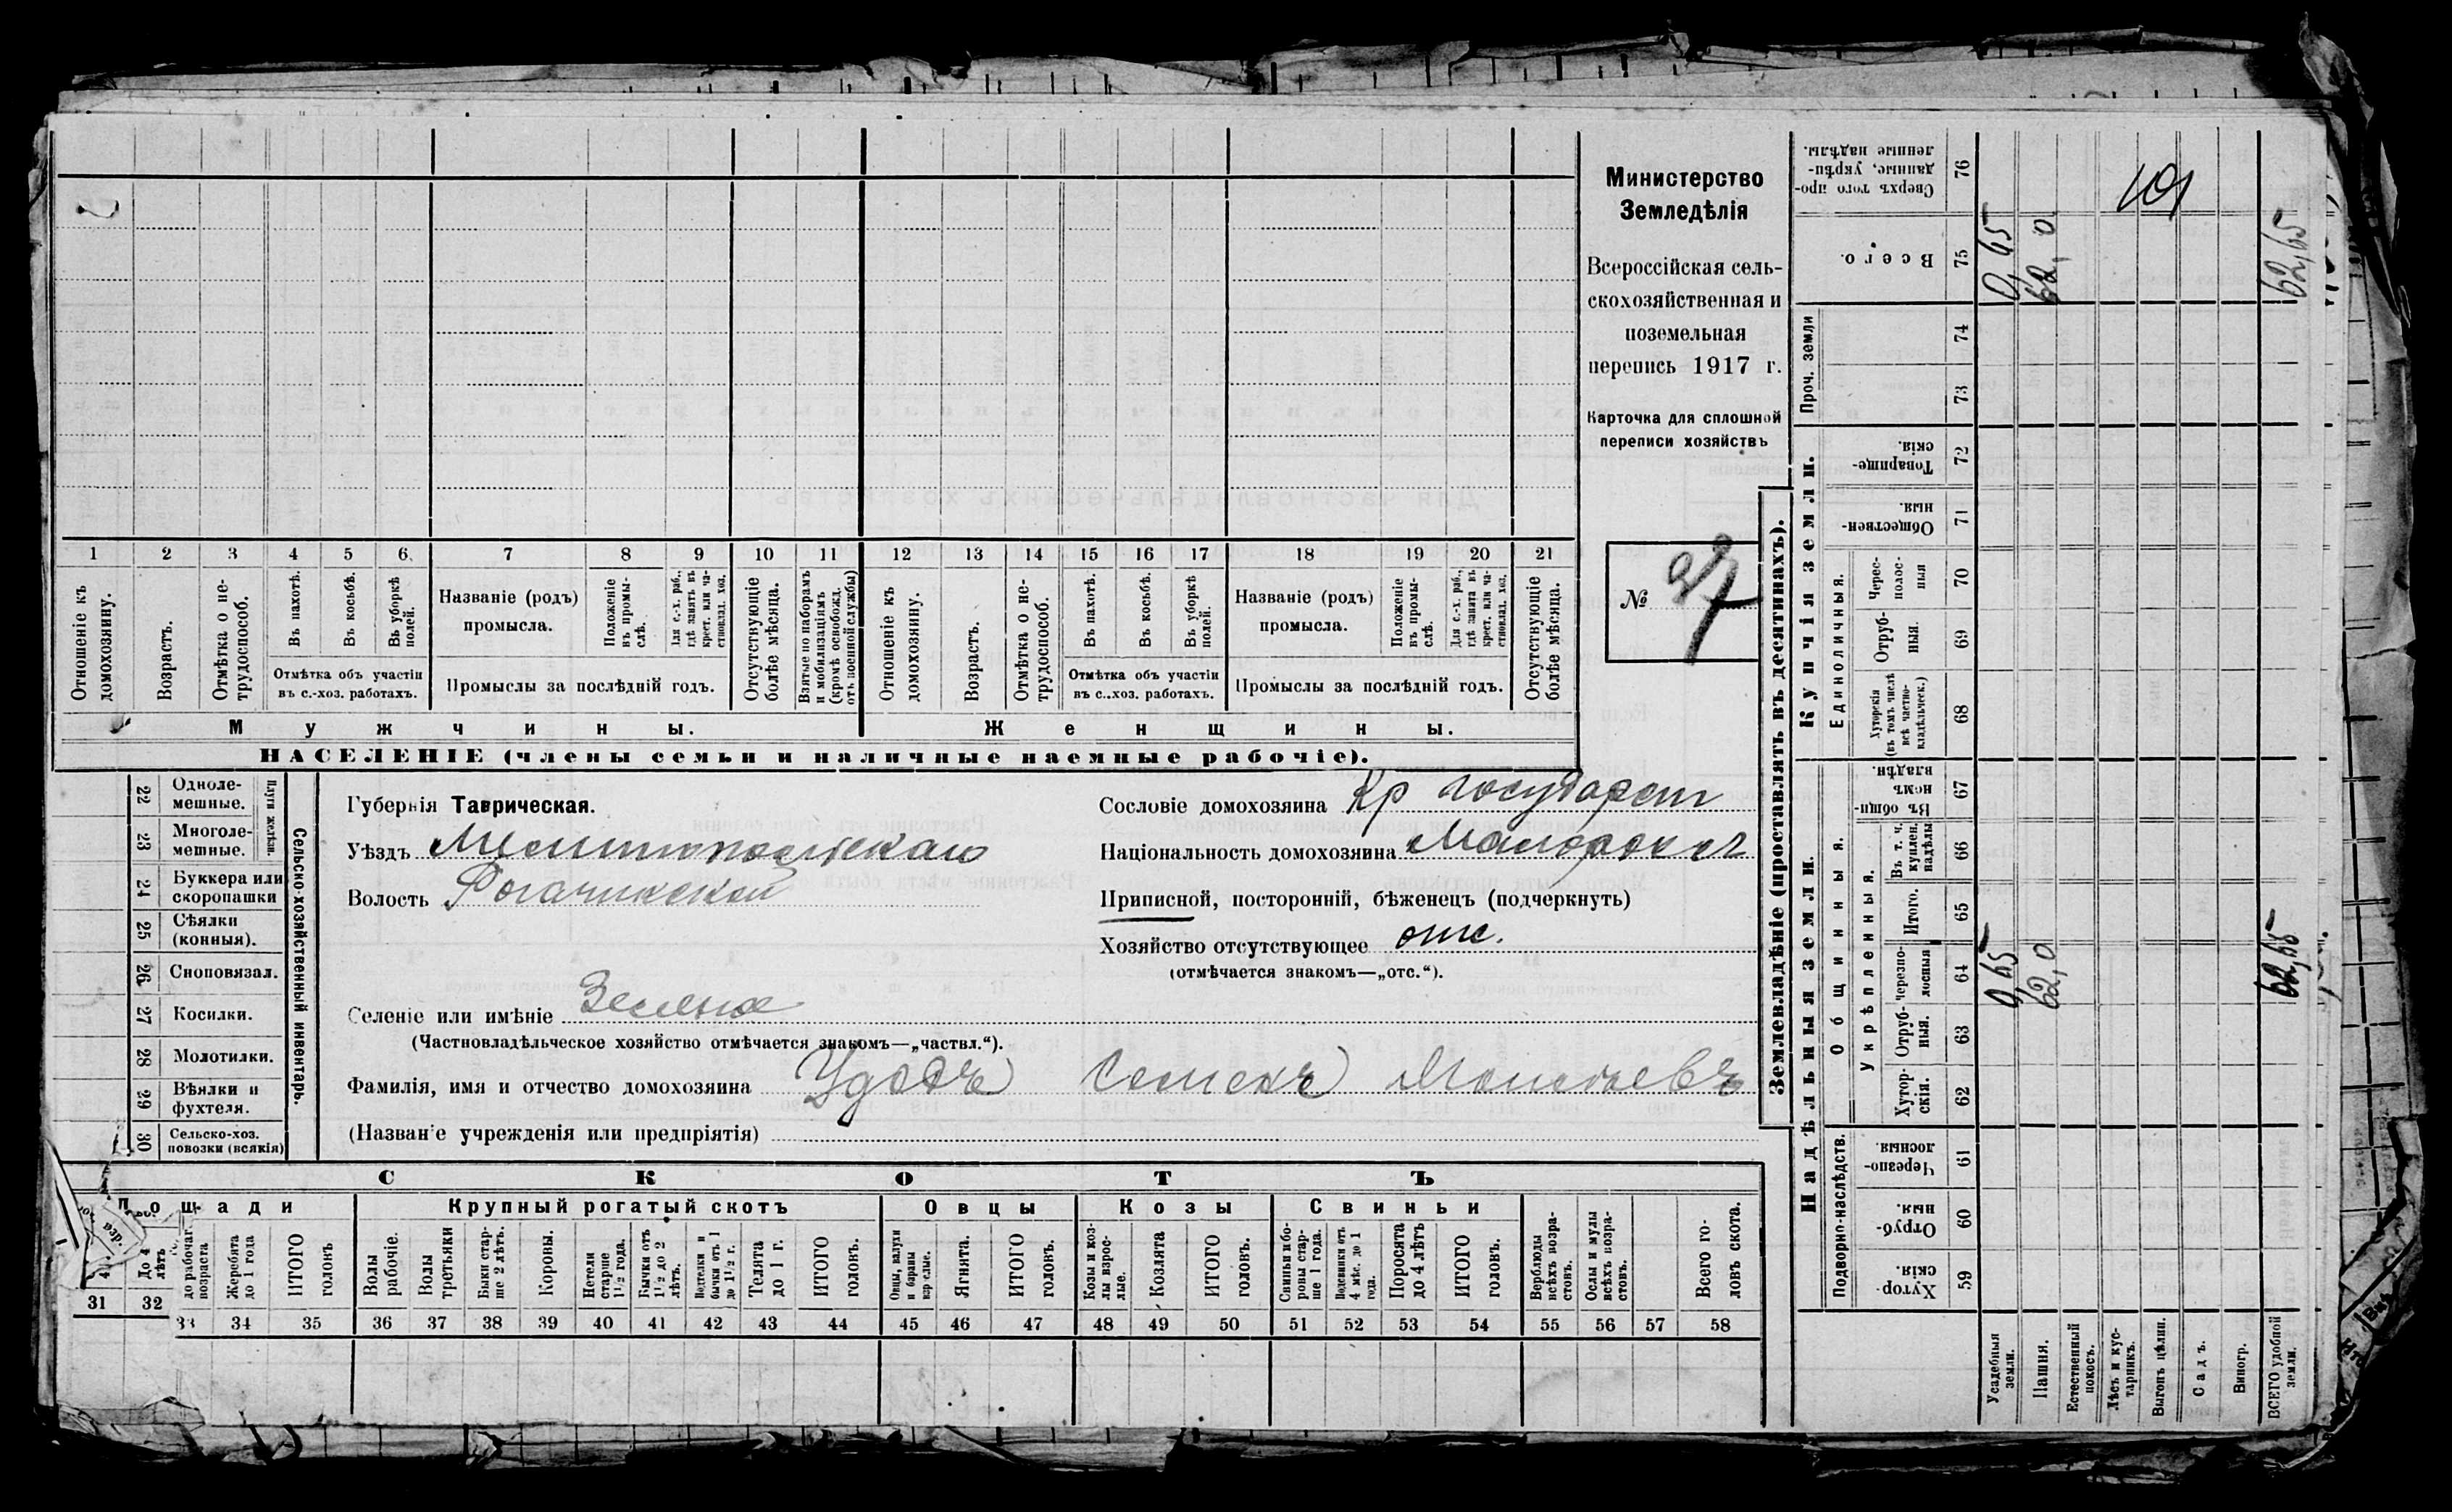 Министерство
Земледѣлія
Всероссійская сель-
скохозяйственная и
поземельная
перепись 1917 г.
Карточка для сплошной
переписи хозяйствъ
№ 37
1 2 3 4 5 6 7 8 9 10 11 12 13 14 15 16 17 18 19 20 21
Отношеніе къ домохозяину.
Возрастъ.
Отмѣтка о не-трудоспособ.
Въ пахотѣ.
Въ косьбѣ.
Въ уборкѣ полей.
Названіе (родъ) промысла.
Положеніе въ промы-слѣ.
Для с.-х. раб., гдѣ занятъ въ крест. или ча-стновлад. хоз.
Отсутствующіе болѣе мѣсяца.
Взятые по наборамъ и мобилизаціямъ (кромѣ освобожд. отъ военной службы)
Отношеніе къ домохозяину.
Возрастъ.
Отмѣтка о не-трудоспособ.
Въ пахотѣ.
Въ косьбѣ.
Въ уборкѣ полей.
Названіе (родъ) промысла.
Положеніе въ промы-слѣ.
Для с.-х. раб., гдѣ занята въ крест. или ча-стновлад. хоз.
Отсутствующіе болѣе мѣсяца.
Отмѣтка объ участіи въ с.-хоз. работахъ.
Промыслы за послѣдній годъ.
Отмѣтка объ участіи въ с.-хоз. работахъ.
Промыслы за послѣдній годъ.
Мужчины.
Женщины.
НАСЕЛЕНІЕ (члены семьи и наличные наемные рабочіе).
Сельско-хозяйственный инвентарь.
Плуги желѣзн.
22 Одноле-мешные.
23 Многоле-мешные.
24 Буккера или скоропашки
25 Сѣялки (конныя).
26 Сноповязал.
27 Косилки.
28 Молотилки.
29 Вѣялки и фухтеля.
30 Сельско-хоз. повозки (всякія)
Губернія Таврическая.
Уѣздъ Мелитопольскаго
Волость Рогачикской
Сословіе домохозяина Кр государст
Національность домохозяина Малоросс
Приписной, посторонній, бѣженецъ (подчеркнуть)
Хозяйство отсутствующее отс.
(отмѣчается знакомъ—„отс.“).
Селеніе или имѣніе Зелена
(Частновладѣльческое хозяйство отмѣчается знакомъ—„частвл.“).
Фамилія, имя и отчество домохозяина Удодъ Семенъ
(Названіе учрежденія или предпріятія)
СКОТЪ
Лошади
Крупный рогатый скотъ
Овцы
Козы
Свиньи
До 4 лѣтъ
до рабочаг. возраста
Жеребята до 1 года
ИТОГО головъ
Волы рабочіе.
Волы третьяки
Быки стар-ше 2 лѣтъ.
Коровы.
Нетели старше 1½ года.
Бычки отъ 1½ до 2 лѣтъ.
Подтелки и бычки отъ 1 до 1½ г.
Телята до 1 г.
ИТОГО головъ.
Овцы, валухи и бараны взрослые.
Ягнята.
ИТОГО головъ.
Козы и коз-лы взрос-лые.
Козлята
ИТОГО головъ.
Свиньи и бо-ровы стар-ше 1 года.
Подсвинки отъ 4 мѣс. до 1 года.
Поросята до 4 лѣтъ
ИТОГО головъ.
Верблюды всѣхъ возра-стовъ.
Ослы и мулы всѣхъ возра-стовъ.
Всего го-ловъ скота.
31 32 33 34 35 36 37 38 39 40 41 42 43 44 45 46 47 48 49 50 51 52 53 54 55 56 57 58
Землевладѣніе (проставлять въ десятинахъ).
Надѣльныя земли.
Купчія земли.
Проч. земли
Подворно-наслѣдств.
Общинныя.
Укрѣпленныя.
Единоличныя.
76 Сверхъ того про-данные, укрѣп-ленные надѣлы.
75 Всего. 0,65 62,0 62,65
74
73
72 Товарище-скія
71 Обществен-ныя
70 Черес-полос-ныя
69 Отруб-ныя.
68 Хуторскія (въ томъ числѣ всѣ частно-владѣльческ.)
67 Въ общин-номъ владѣн.
66 Въ т. ч. куплен. надѣлы
65 Итого.
64 Черезпо-лосныя 0,65 62,0 62,65
63 Отруб-ныя.
62 Хутор-скія.
61 Черезпо-лосныя.
60 Отруб-ныя.
59 Хутор-скія.
Усадебныя земли.
Пашня.
Естественный покосъ.
Лѣсъ и кус-тарникъ.
Выгонъ цѣлин.
Садъ.
Виногр.
ВСЕГО удобной земли.